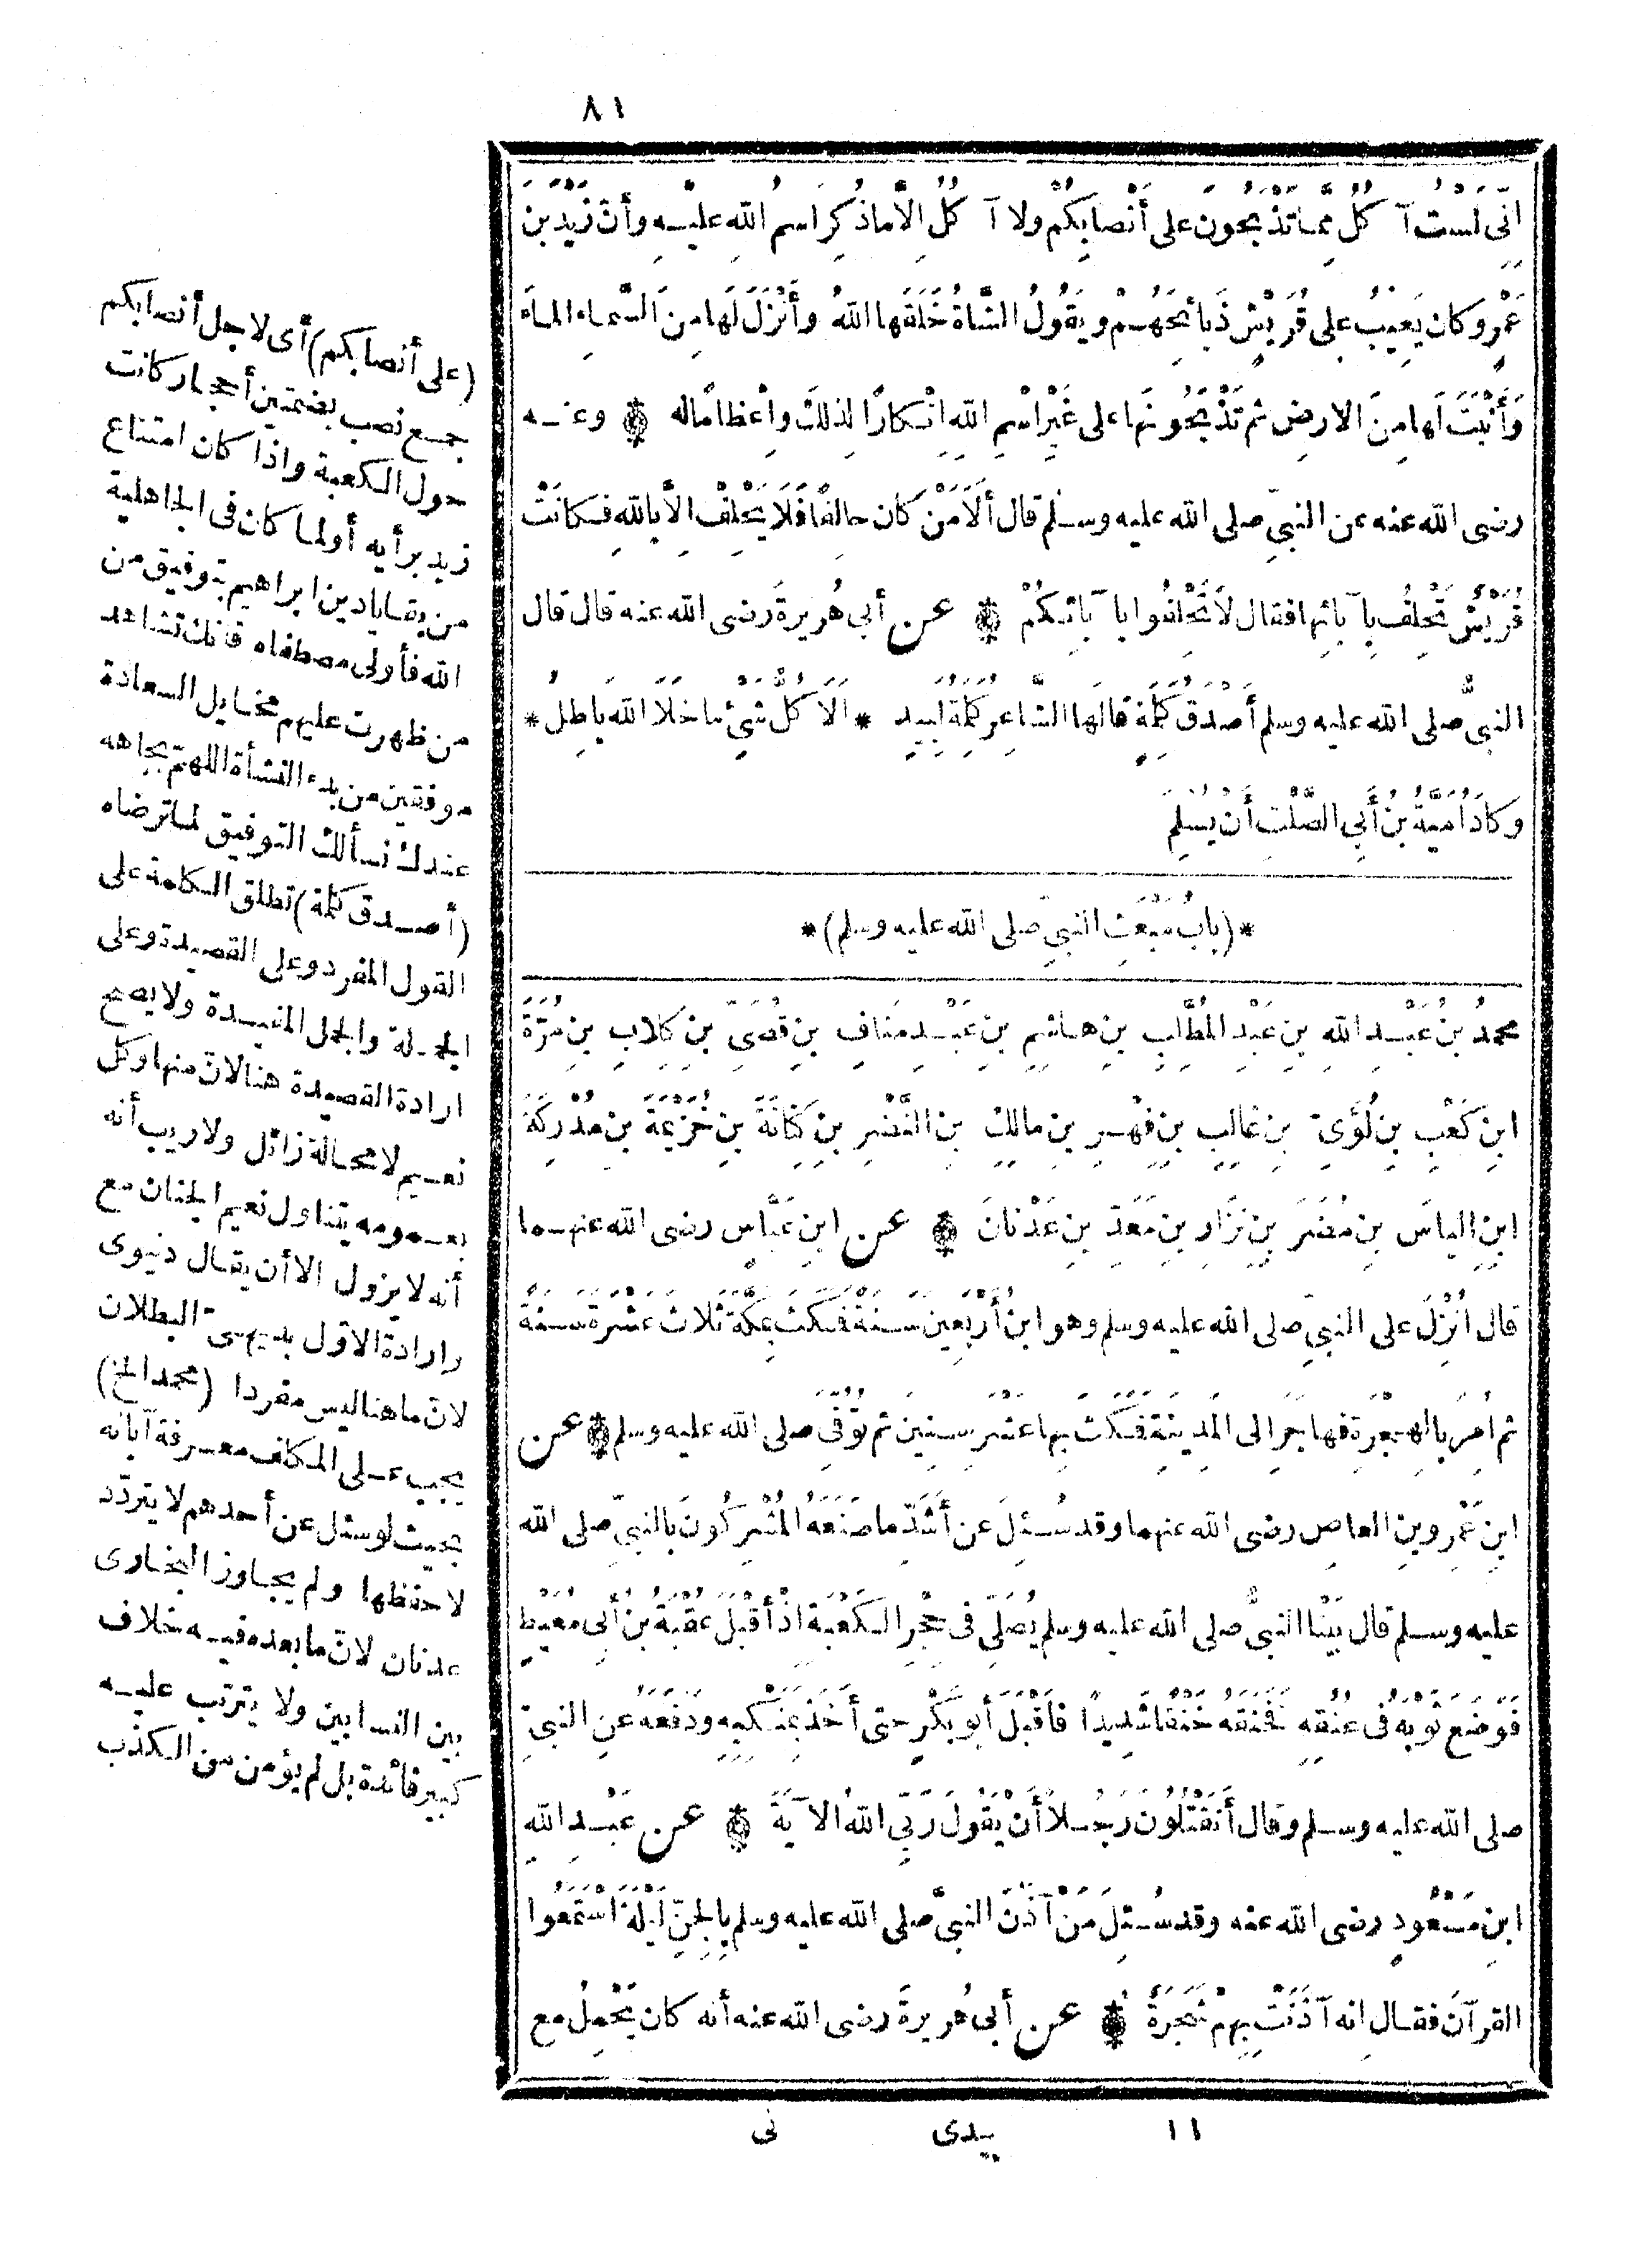 ٨١
إنِّي لَسْتُ آكُلُ مِمَّا تَذْبَحُونَ على أَنْصَابِكُمْ ولا آكُلُ إلاَّ ما ذُكِرَ اسمُ اللهِ عليهِ وأنَّ زَيْدَ بنَ
عَمْرٍو كان يَعِيْبُ على قُرَيْشٍ ذَبائِحَهُمْ ويَقُولُ الشَّاةُ خَلَقَها اللهُ وأَنْزَلَ لَها مِنَ السَّماءِ الماءَ
وَأَنْبَتَ لَها مِنَ الارضِ ثم تَذْبَحُونَها على غَيْرِ اسْمِ اللهِ إنْكارًا لِذلِكَ وإعْظامًا له ۞ وعنه
رضى الله عنه عن النبىِّ صلى الله عليه وسلم قال أَلاَ مَنْ كان حالِفًا فَلاَ يَحْلِفْ إلاَّ باللهِ فكانَتْ
قُرَيْشٌ تَحْلِفُ بِآبائِها فقال لاَ تَحْلِفُوا بِآبائِكُمْ ۞ عن أبى هُريرةَ رضى الله عنه قال قال
النبىُّ صلى الله عليه وسلم أَصْدَقُ كَلِمَةٍ قالَها الشَّاعِرُ كَلِمَةُ لَبِيدٍ * أَلاَ كُلُّ شَيْءٍ ما خَلاَ اللهَ باطِلُ *
وكادَ أُمَيَّةُ بنُ أَبِي الصَّلْتِ أَنْ يُسْلِمَ
*(بابُ مَبْعَثِ النبىِّ صلى الله عليه وسلم)*
محمدُ بنُ عَبْدِ اللهِ بنِ عَبْدِ المُطَّلِبِ بنِ هاشِمِ بنِ عَبْدِ مَنافِ بنِ قُصَىِّ بنِ كِلابِ بنِ مُرَّةَ
ابنِ كَعْبِ بنِ لُؤَىِّ بنِ غالِبِ بنِ فِهْرِ بنِ مالِكِ بنِ النَّضْرِ بنِ كِنانَةَ بنِ خُزَيْمَةَ بنِ مُدْرِكَةَ
ابنِ الياسَ بنِ مُضَرَ بنِ نِزارِ بنِ مَعَدِّ بنِ عَدْنانَ ۞ عن ابنِ عَبَّاسٍ رضى الله عنهما
قال أُنْزِلَ على النبىِّ صلى الله عليه وسلم وهو ابنُ أَرْبَعِينَ سَنَةً فَمَكَثَ بِمَكَّةَ ثَلاثَ عَشْرَةَ سَنَةً
ثم أُمِرَ بالهِجْرَةِ فهاجَرَ الى المَدِينَةِ فَمَكَثَ بها عَشْرَ سِنِينَ ثم تُوُفِّىَ صلى الله عليه وسلم ۞ عن
ابنِ عَمْرِو بنِ العاصِ رضى الله عنهما وقد سُئِلَ عن أَشَدِّ ما صَنَعَهُ المُشْرِكُونَ بالنبىِّ صلى الله
عليه وسلم قال بَيْنا النبىُّ صلى الله عليه وسلم يُصَلِّى فى حِجْرِ الكَعْبَةِ إذْ أَقْبَلَ عُقْبَةُ بنُ أَبِى مُعَيْطٍ
فَوَضَعَ ثَوْبَهُ فى عُنُقِهِ فَخَنَقَهُ خَنْقًا شَدِيدًا فأَقْبَلَ أبو بَكْرٍ حتى أَخَذَ بِمَنْكِبِهِ ودَفَعَهُ عَنِ النبىِّ
صلى الله عليه وسلم وقال أَتَقْتُلُونَ رَجُلاً أَنْ يَقُولَ رَبِّىَ اللهُ الآيَةَ ۞ عن عَبْدِ اللهِ
ابنِ مَسْعُودٍ رضى الله عنه وقد سُئِلَ مَنْ آذَنَ النبىَّ صلى الله عليه وسلم بِالجِنِّ لَيْلَةَ اسْتَمَعُوا
القرآنَ فقال إنه آذَنَتْ بِهِمْ شَجَرَةٌ ۞ عن أبى هُريرةَ رضى الله عنه أنه كان يَحْمِلُ مع
١١ زبيدى نى
(على أنصابكم) أى لاجل أنصابكم
جمع نصب بضمتين أحجار كانت
حول الكعبة واذا كان امتناع
زيد برأيه أو لما كان فى الجاهلية
من بقايا دين ابراهيم بتوفيق من
الله فأولى مصطفاه فانك تشاهد
من ظهرت عليهم مخايل السعادة
موفقين من بدء النشأة اللهم بجاهه
عندك نسألك التوفيق لما ترضاه
(أصدق كلمة) تطلق الكلمة على
القول المفرد وعلى القصيدة وعلى
الجملة والجمل المفيدة ولا يصح
ارادة القصيدة هنا لان منها وكل
نعيم لا محالة زائل ولا ريب أنه
بعمومه يتناول نعيم الجنان مع
أنه لا يزول الا أن يقال دنيوى
وارادة الاوّل بديهىّ البطلان
لانّ ما هنا ليس مفردا (محمد الخ)
يجب على المكلف معرفة آبائه
بحيث لو سئل عن أحدهم لا يتردّد
لا حفظها ولم يجاوز البخارى
عدنان لانّ ما بعده فيه خلاف
بين النسابين ولا يترتب عليه
كبير فائدة بل لم يؤمن من الكذب